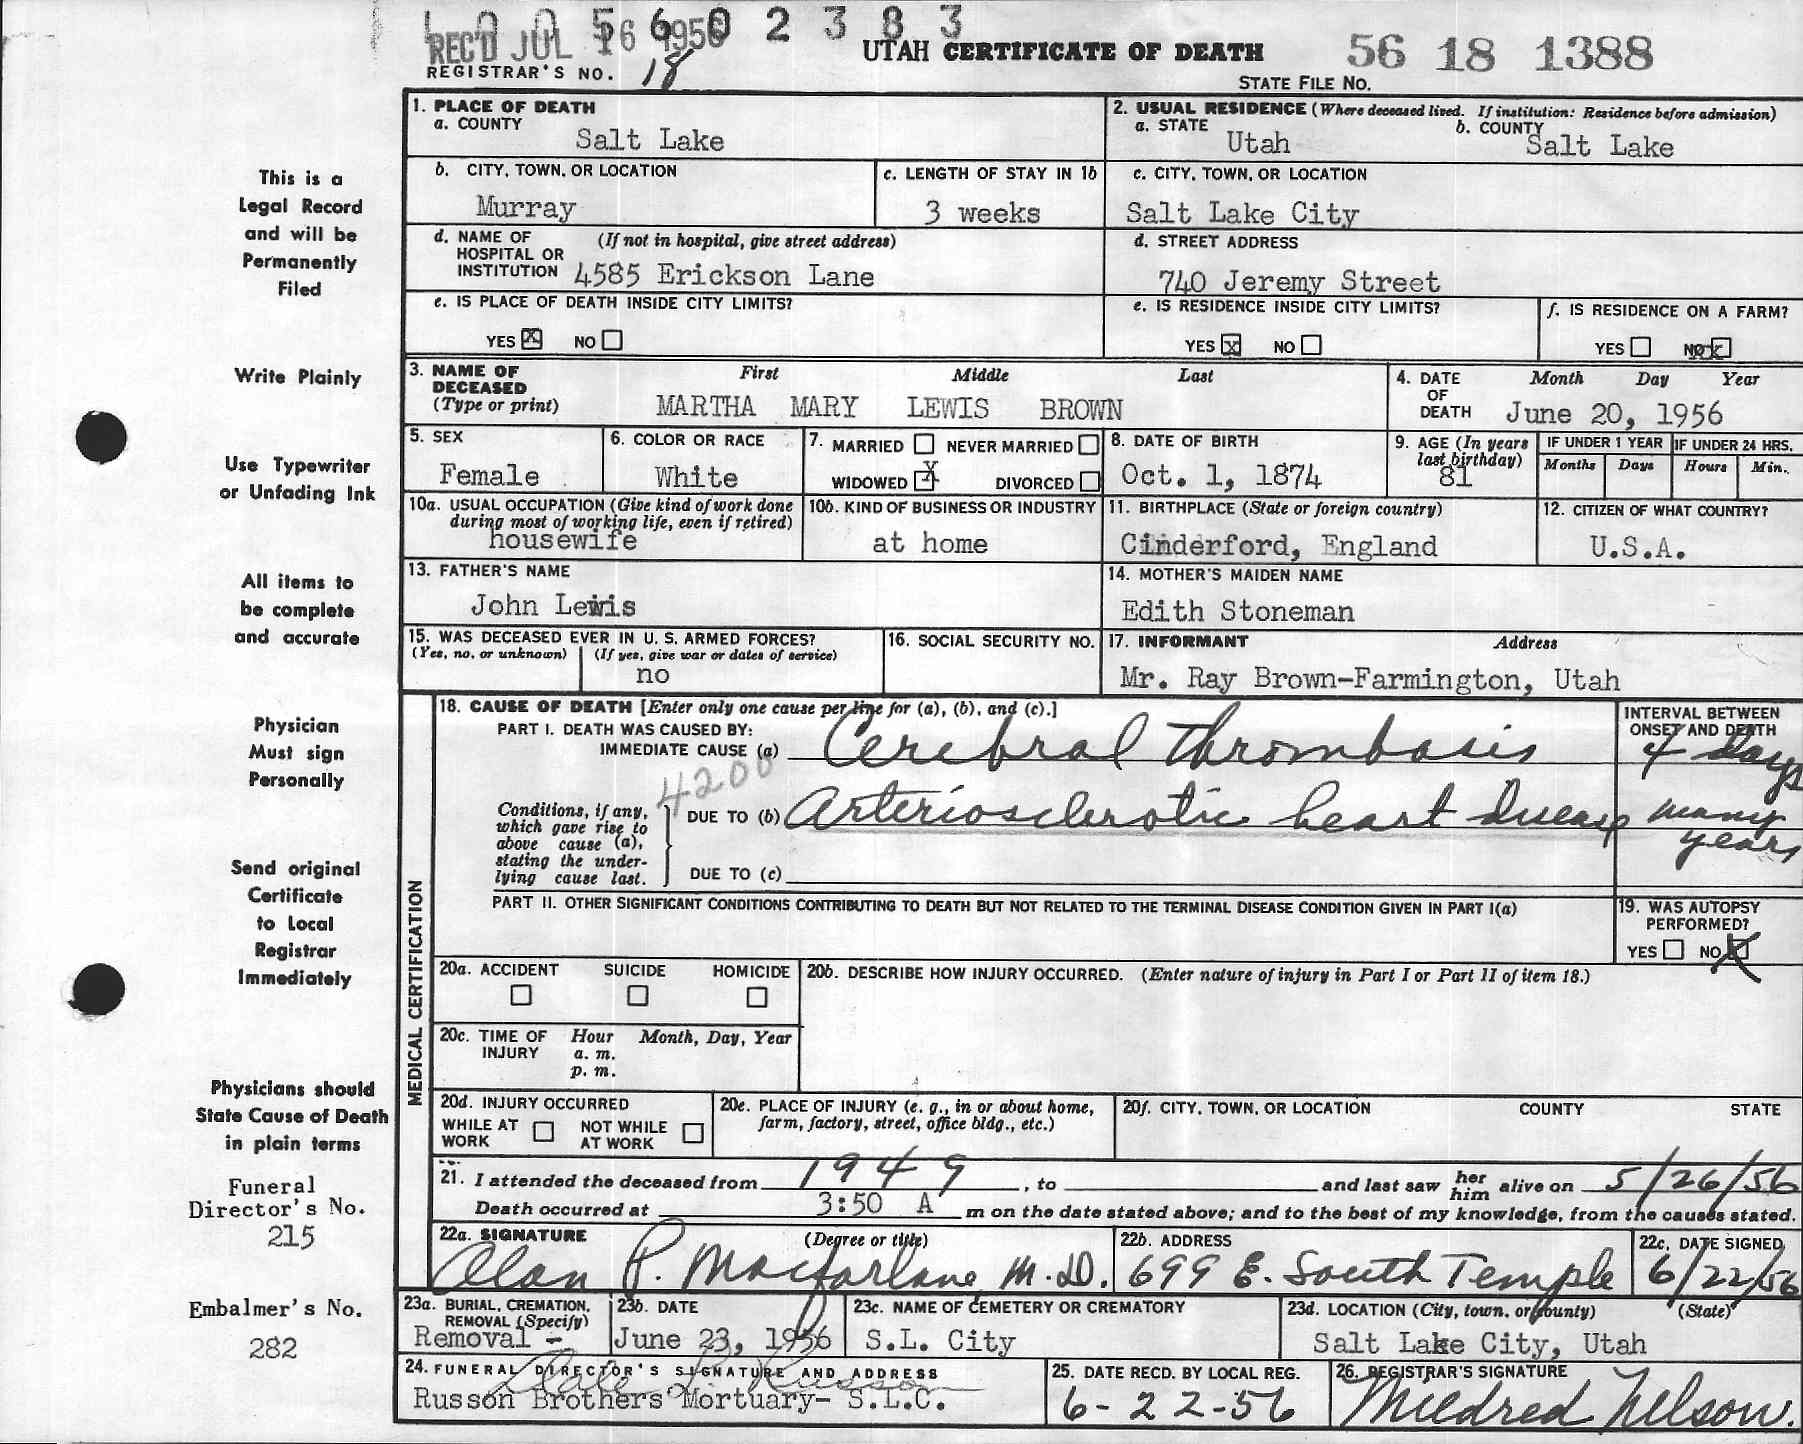 L 0 0 5 6 0 2 3 8 3
REC'D JUL 16 1956
UTAH CERTIFICATE OF DEATH 56 18 1388
REGISTRAR'S NO. 18
STATE FILE NO.
1. PLACE OF DEATH
a. COUNTY
Salt Lake
2. USUAL RESIDENCE (Where deceased lived. If institution: Residence before admission)
a. STATE b. COUNTY
Utah Salt Lake
b. CITY, TOWN, OR LOCATION
Murray
c. LENGTH OF STAY IN 1b
3 weeks
c. CITY, TOWN, OR LOCATION
Salt Lake City
d. NAME OF (If not in hospital, give street address)
HOSPITAL OR
INSTITUTION 4585 Erickson Lane
d. STREET ADDRESS
740 Jeremy Street
e. IS PLACE OF DEATH INSIDE CITY LIMITS?
YES X NO
e. IS RESIDENCE INSIDE CITY LIMITS?
YES X NO
f. IS RESIDENCE ON A FARM?
YES NO X
3. NAME OF DECEASED (Type or print)
First Middle Last
MARTHA MARY LEWIS BROWN
4. DATE OF DEATH
Month Day Year
June 20, 1956
5. SEX
Female
6. COLOR OR RACE
White
7. MARRIED NEVER MARRIED
WIDOWED X DIVORCED
8. DATE OF BIRTH
Oct. 1, 1874
9. AGE (In years last birthday)
81
IF UNDER 1 YEAR IF UNDER 24 HRS.
Months Days Hours Min.
10a. USUAL OCCUPATION (Give kind of work done
during most of working life, even if retired)
housewife
10b. KIND OF BUSINESS OR INDUSTRY
at home
11. BIRTHPLACE (State or foreign country)
Cinderford, England
12. CITIZEN OF WHAT COUNTRY?
U.S.A.
13. FATHER'S NAME
John Lewis
14. MOTHER'S MAIDEN NAME
Edith Stoneman
15. WAS DECEASED EVER IN U. S. ARMED FORCES?
(Yes, no, or unknown) (If yes, give war or dates of service)
no
16. SOCIAL SECURITY NO.
17. INFORMANT Address
Mr. Ray Brown-Farmington, Utah
MEDICAL CERTIFICATION
18. CAUSE OF DEATH [Enter only one cause per line for (a), (b), and (c).]
PART I. DEATH WAS CAUSED BY:
IMMEDIATE CAUSE (a) Cerebral thrombosis
INTERVAL BETWEEN
ONSET AND DEATH
4 days
4200
Conditions, if any,
which gave rise to
above cause (a),
stating the under-
lying cause last.
DUE TO (b) Arteriosclerotic heart disease many years
DUE TO (c)
PART II. OTHER SIGNIFICANT CONDITIONS CONTRIBUTING TO DEATH BUT NOT RELATED TO THE TERMINAL DISEASE CONDITION GIVEN IN PART I(a)
19. WAS AUTOPSY
PERFORMED?
YES NO X
20a. ACCIDENT SUICIDE HOMICIDE
20b. DESCRIBE HOW INJURY OCCURRED. (Enter nature of injury in Part I or Part II of item 18.)
20c. TIME OF INJURY Hour Month, Day, Year
a. m.
p. m.
20d. INJURY OCCURRED
WHILE AT WORK NOT WHILE AT WORK
20e. PLACE OF INJURY (e. g., in or about home,
farm, factory, street, office bldg., etc.)
20f. CITY, TOWN, OR LOCATION COUNTY STATE
21. I attended the deceased from 1949, to and last saw her him alive on 5/26/56
Death occurred at 3:50 A m on the date stated above; and to the best of my knowledge, from the causes stated.
22a. SIGNATURE (Degree or title)
Alan P. Macfarlane M.D.
22b. ADDRESS
699 E. South Temple
22c. DATE SIGNED
6/22/56
23a. BURIAL, CREMATION,
REMOVAL (Specify)
Removal -
23b. DATE
June 23, 1956
23c. NAME OF CEMETERY OR CREMATORY
S.L. City
23d. LOCATION (City, town, or county) (State)
Salt Lake City, Utah
24. FUNERAL DIRECTOR'S SIGNATURE AND ADDRESS
Russon Brothers Mortuary- S.L.C.
25. DATE RECD. BY LOCAL REG.
6-22-56
26. REGISTRAR'S SIGNATURE
Mildred Nelson.
This is a
Legal Record
and will be
Permanently
Filed
Write Plainly
Use Typewriter
or Unfading Ink
All items to
be complete
and accurate
Physician
Must sign
Personally
Send original
Certificate
to Local
Registrar
Immediately
Physicians should
State Cause of Death
in plain terms
Funeral
Director's No.
215
Embalmer's No.
282